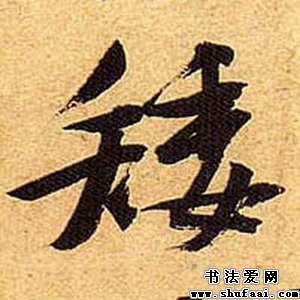 矮
书法爱网
www.shufaai.com